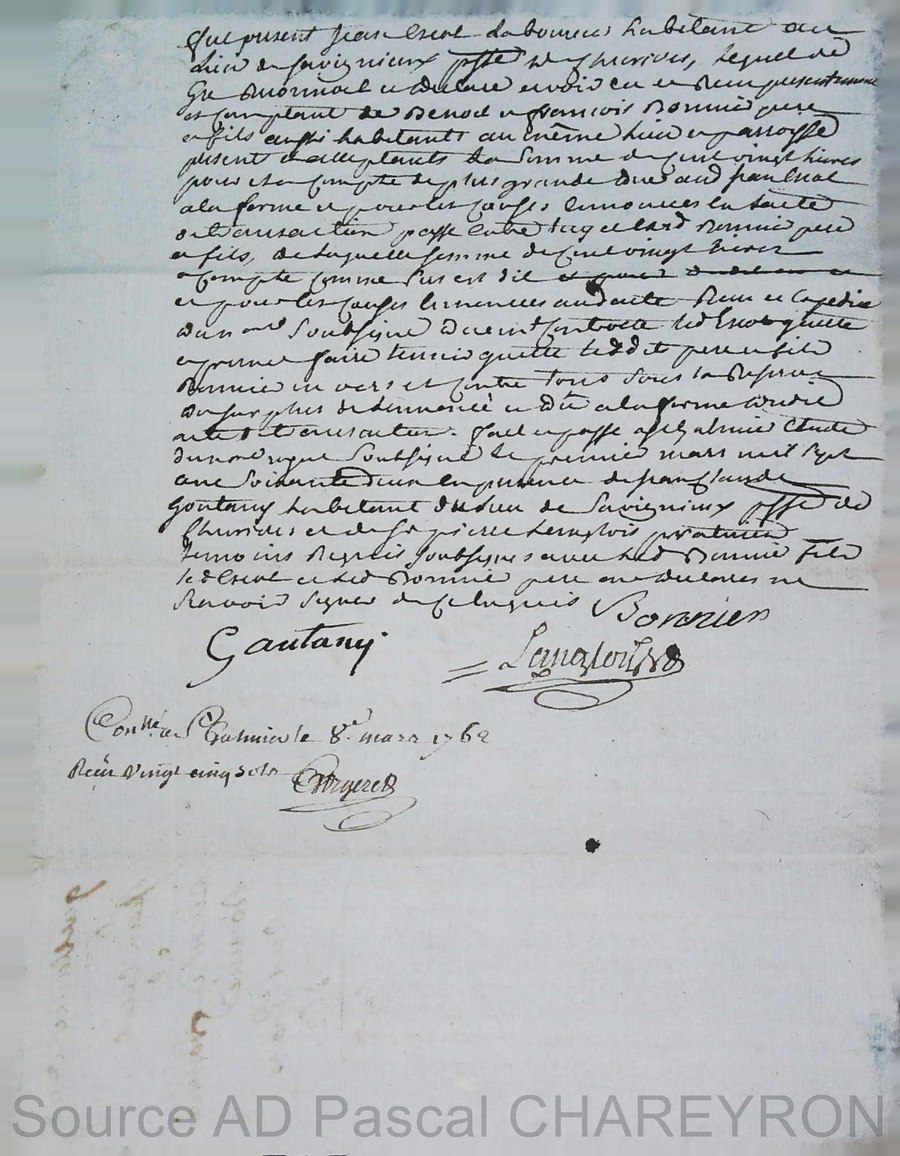 fut présent Jean Escot Laboureur habitant au
Lieu de Savignieux psse de Churides, lequel de
Gré Reconnoit et déclare avoir eu et Reçu présentement
et Comptant de Benoit et françois Bonnié père
et fils aussi habitants au même Lieu et parroisse
présent et acceptants La Somme de Cent vingt Livres
pour et a Compte de plus grande due aud Jean Escot
a la forme et pour les Causes Ennoncés en lacte
de transaction passé Entre luy et lesd Bonnié père
et fils, de laquelle Somme de Cent vingt livres
a Compte Comme Sus est dit
et pour les Causes Ennoncées audacte Reçu et Expedié
du Soubsigné led Escot quitte
et promet faire tenir quitte lesdits père et fils
Bonnié en vers et Contre tous Sous la Réserve
du Surplus et dû a la forme dudit
acte de transaction. fait et passé a St Galmier Etude
du no.re royal Soubsigné le premier mars mil Sept
cent Soixante deux en présence de Jean Claude
Goutany habitant du Lieu de Savignieux psse de
Churides et de Sr pierre Langlois praticien
temoins Requis Soubsignés avec led Bonnié fils
led Escot et led Bonnié père ont declarés ne
Savoir Signer de Ce Enquis Bonnier
Gautany Langlois
Con.llé a St Galmier le 8.e mars 1762
Reçu vingt cinq sols
Source AD Pascal CHAREYRON